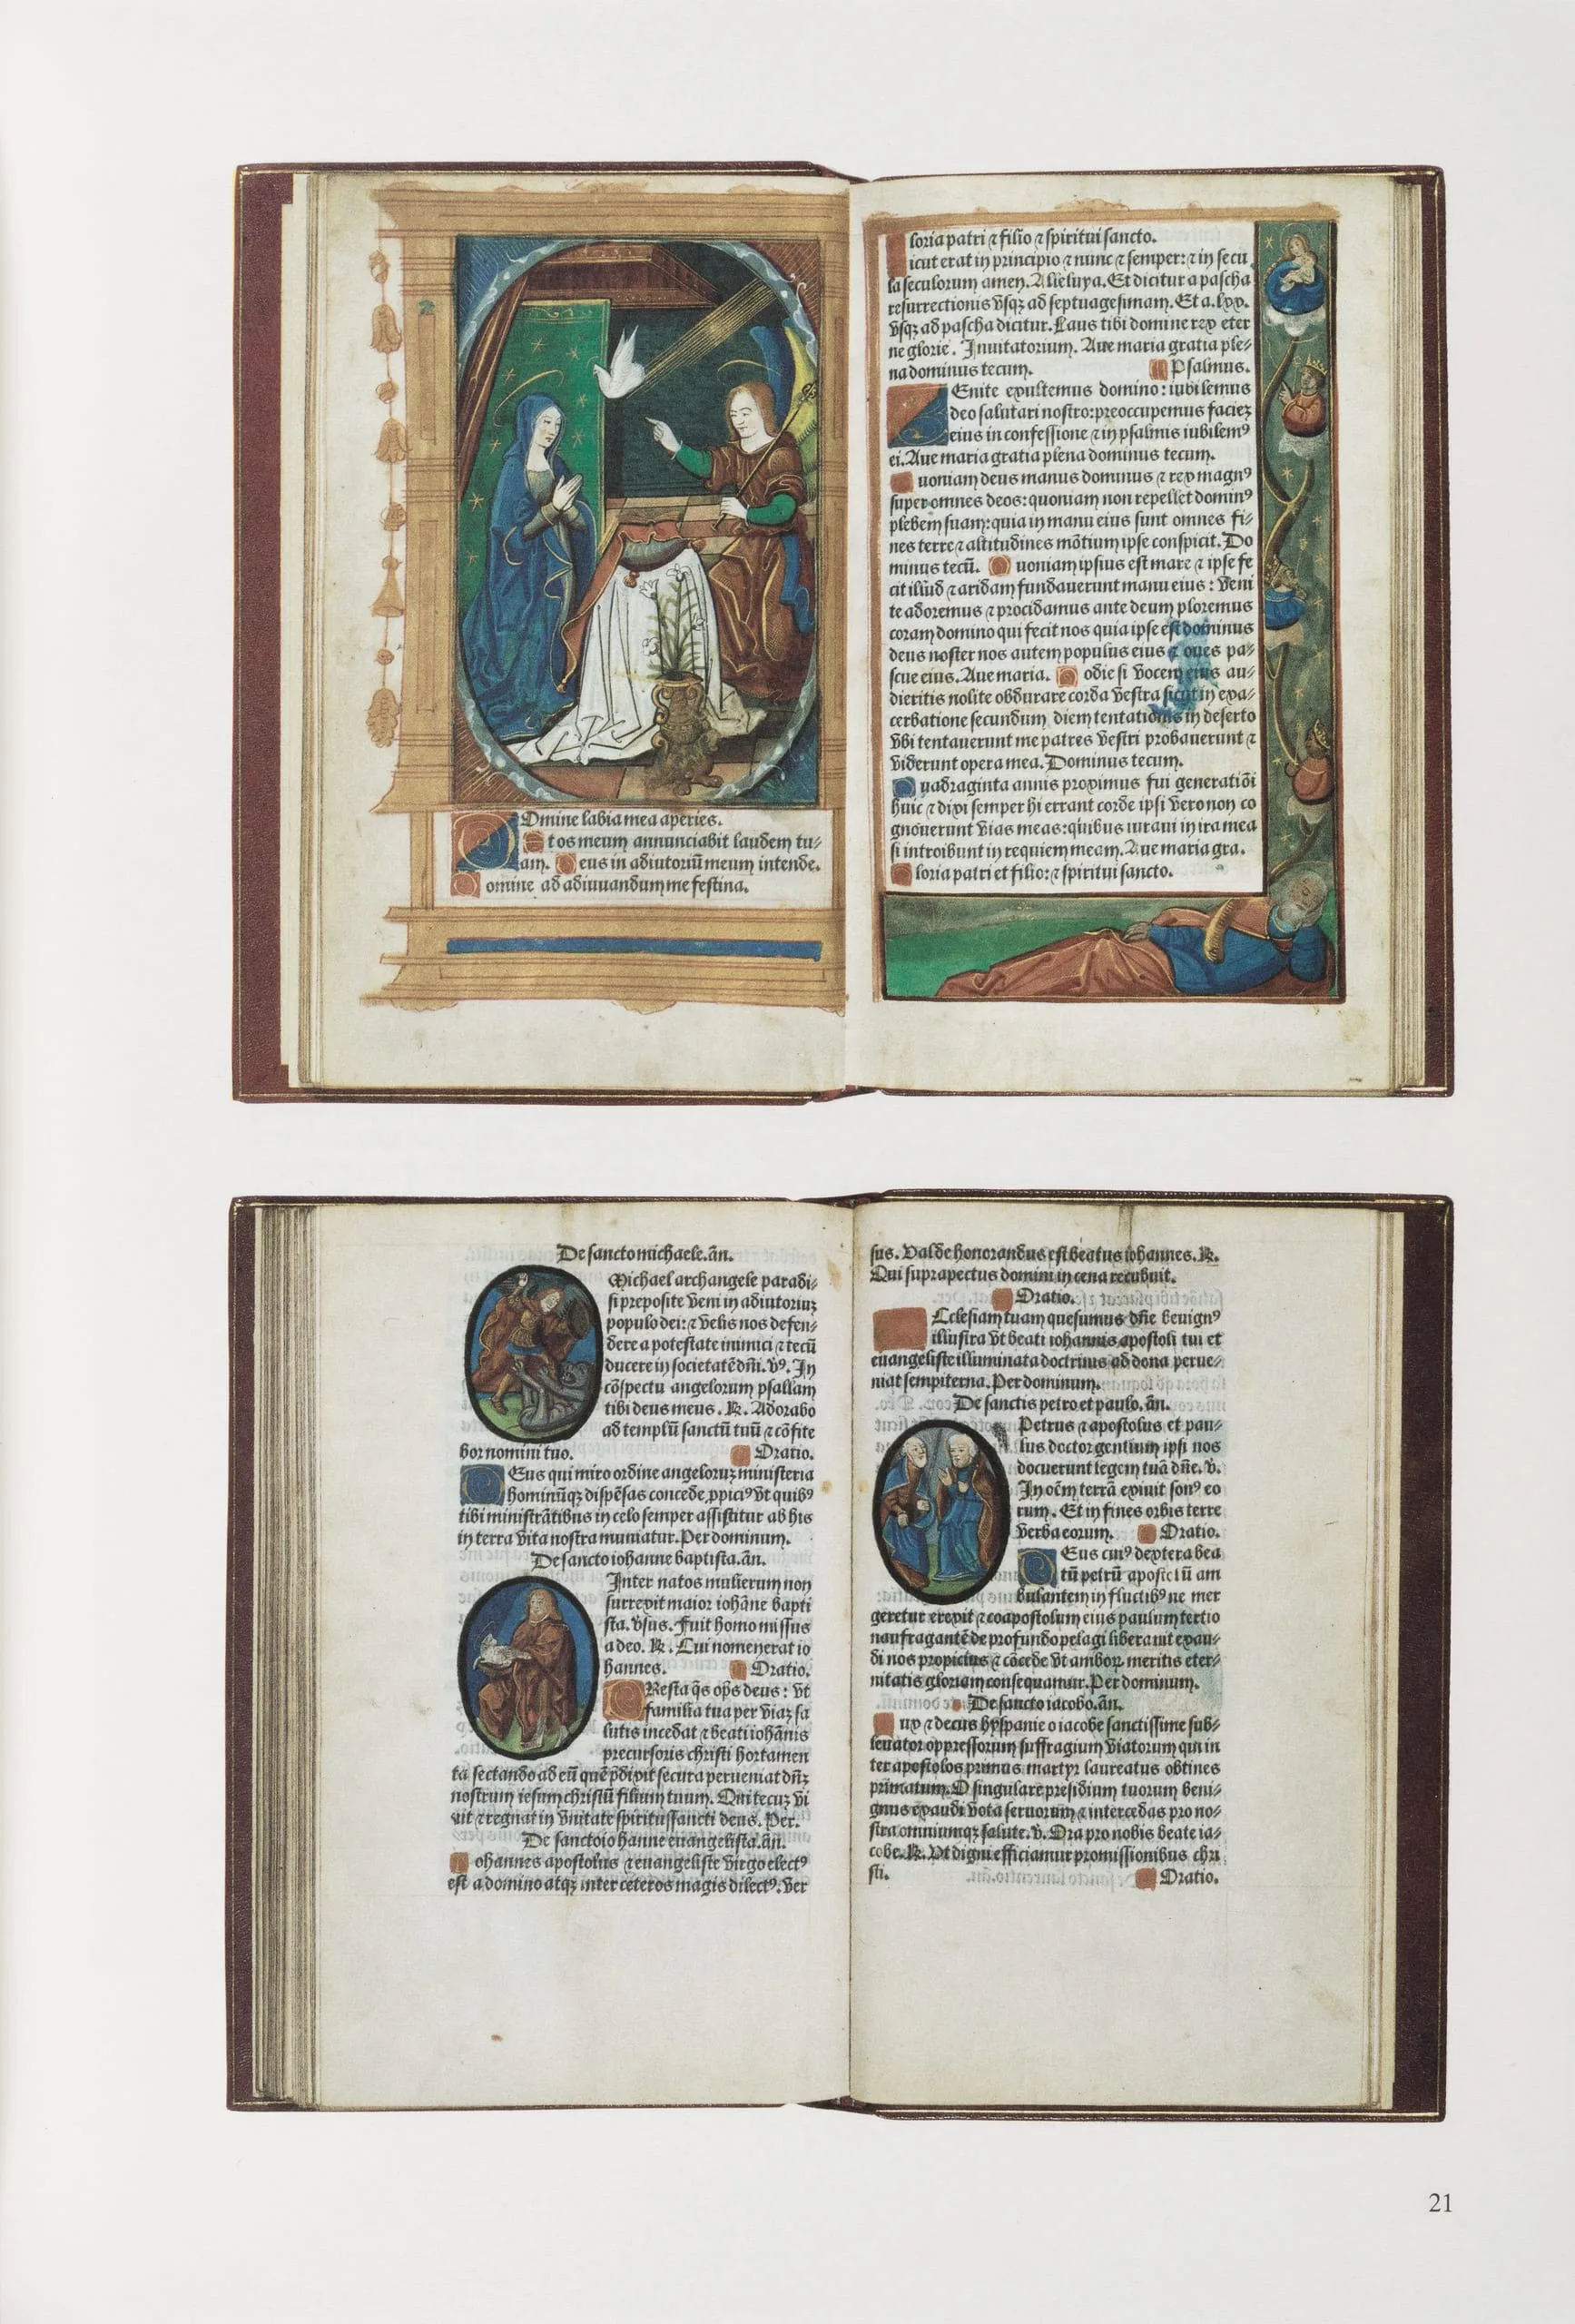 Omine labia mea aperies.
Et os meum annunciabit laudem tu⸗
am. Deus in adiutoriū meum intende.
Domine ad adiuuandum me festina.
loria patri ⁊ filio ⁊ spiritui sancto.
icut erat in principio ⁊ nunc ⁊ semper: ⁊ in secu
la seculorum amen. Alleluya. Et dicitur a pascha
resurrectionis vsqꝫ ad septuagesimam. Et a .lxx.
vsqꝫ ad pascha dicitur. Laus tibi domine rex eter
ne glorie. Inuitatorium. Aue maria gratia ple⸗
na dominus tecum. Psalmus.
Enite exultemus domino: iubilemus
deo salutari nostro: preoccupemus facieꝫ
eius in confessione ⁊ in psalmis iubilemꝰ
ei. Aue maria gratia plena dominus tecum.
uoniam deus manus dominus ⁊ rex magnꝰ
super omnes deos: quoniam non repellet dominꝰ
plebem suam: quia in manu eius sunt omnes fi⸗
nes terre ⁊ altitudines mōtium ipse conspicit. Do
minus tecū. uoniam ipsius est mare ⁊ ipse fe
cit illud ⁊ aridam fundauerunt manu eius: veni
te adoremus ⁊ procidamus ante deum ploremus
coram domino qui fecit nos quia ipse est dominus
deus noster nos autem populus eius ⁊ oues pa⸗
scue eius. Aue maria. odie si vocem eius au⸗
dieritis nolite obdurare corda vestra sicut in exa⸗
cerbatione secundum diem tentationis in deserto
vbi tentauerunt me patres vestri probauerunt ⁊
viderunt opera mea. Dominus tecum.
uadraginta annis proximus fui generatiōi
huic ⁊ dixi semper hi errant corde ipsi vero non co
gnouerunt vias meas: quibus iuraui in ira mea
si introibunt in requiem meam. Aue maria gra.
loria patri et filio: ⁊ spiritui sancto.
De sancto michaele. añ.
Michael archangele paradi⸗
si preposite veni in adiutoriuꝫ
populo dei: ⁊ velis nos defen⸗
dere a potestate inimici ⁊ tecū
ducere in societatē dñi. vꝰ. In
cōspectu angelorum psallam
tibi deus meus. ℟. Adorabo
ad templū sanctū tuū ⁊ cōfite
bor nomini tuo. Oratio.
Eus qui miro ordine angeloruꝫ ministeria
hominūqꝫ dispēsas concede ꝓpiciꝰ vt quibꝰ
tibi ministrātibus in celo semper assistitur ab his
in terra vita nostra muniatur. Per dominum.
De sancto iohanne baptista. añ.
Inter natos mulierum non
surrexit maior iohāne bapti
sta. vsus. Fuit homo missus
a deo. ℟. Cui nomen erat io
hannes. Oratio.
Resta q̄s op̄s deus: vt
familia tua per viaꝫ sa
lutis incedat ⁊ beati iohānis
precursoris christi hortamen
ta sectando ad eū quē p̄dixit secura perueniat dñꝫ
nostrum iesum christū filium tuum. Qui tecuꝫ vi
uit ⁊ regnat in vnitate spiritussancti deus. Per.
De sancto iohanne euangelista. añ.
ohannes apostolus ⁊ euangeliste virgo electꝰ
est a domino atqꝫ inter ceteros magis dilectꝰ. ver
sus. Valde honorandus est beatus iohannes. ℟.
Qui supra pectus domini in cena recubuit.
Oratio.
Cclesiam tuam quesumus dñe benignꝰ
illustra vt beati iohannis apostoli tui et
euangeliste illuminata doctrinis ad dona perue⸗
niat sempiterna. Per dominum.
De sanctis petro et paulo. añ.
Petrus ⁊ apostolus et pau⸗
lus doctor gentium ipsi nos
docuerunt legem tuā dñe. v.
In oēm terrā exiuit sonꝰ eo
rum. Et in fines orbis terre
verba eorum. Oratio.
Eus cuiꝰ dextera bea
tū petrū apostolū am
bulantem in fluctibꝰ ne mer
geretur erexit ⁊ coapostolum eius paulum tertio
naufragantē de profundo pelagi liberauit exau⸗
di nos propicius ⁊ cōcede vt amboꝝ meritis eter⸗
nitatis gloriam consequamur. Per dominum.
De sancto iacobo. añ.
ux ⁊ decus hyspanie o iacobe sanctissime sub⸗
leuator oppressorum suffragium viatorum qui in
ter apostolos primus martyr laureatus obtines
primatum. O singulare presidium tuorum beni⸗
gnus exaudi vota seruorum ⁊ intercedas pro no⸗
stra omniumqꝫ salute. v. Ora pro nobis beate ia⸗
cobe. ℟. Vt digni efficiamur promissionibus chri
sti. Oratio.
21